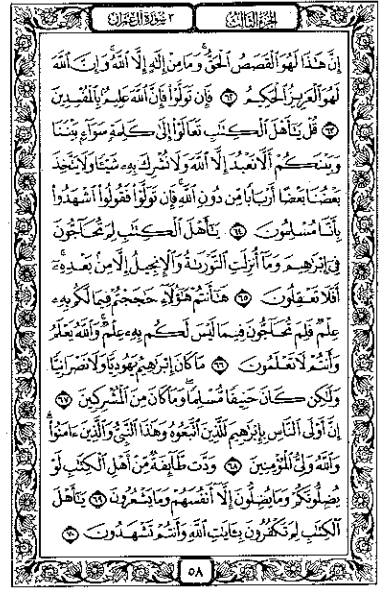 الجزء الثالث
٣ سورة آل عمران
إِنَّ هَٰذَا لَهُوَ ٱلْقَصَصُ ٱلْحَقُّ ۚ وَمَا مِنْ إِلَٰهٍ إِلَّا ٱللَّهُ ۚ وَإِنَّ ٱللَّهَ
لَهُوَ ٱلْعَزِيزُ ٱلْحَكِيمُ ٦٢ فَإِن تَوَلَّوْا۟ فَإِنَّ ٱللَّهَ عَلِيمٌۢ بِٱلْمُفْسِدِينَ
٦٣ قُلْ يَٰٓأَهْلَ ٱلْكِتَٰبِ تَعَالَوْا۟ إِلَىٰ كَلِمَةٍ سَوَآءٍۭ بَيْنَنَا
وَبَيْنَكُمْ أَلَّا نَعْبُدَ إِلَّا ٱللَّهَ وَلَا نُشْرِكَ بِهِۦ شَيْـًٔا وَلَا يَتَّخِذَ
بَعْضُنَا بَعْضًا أَرْبَابًا مِّن دُونِ ٱللَّهِ ۚ فَإِن تَوَلَّوْا۟ فَقُولُوا۟ ٱشْهَدُوا۟
بِأَنَّا مُسْلِمُونَ ٦٤ يَٰٓأَهْلَ ٱلْكِتَٰبِ لِمَ تُحَآجُّونَ
فِىٓ إِبْرَٰهِيمَ وَمَآ أُنزِلَتِ ٱلتَّوْرَىٰةُ وَٱلْإِنجِيلُ إِلَّا مِنۢ بَعْدِهِۦٓ ۚ
أَفَلَا تَعْقِلُونَ ٦٥ هَٰٓأَنتُمْ هَٰٓؤُلَآءِ حَٰجَجْتُمْ فِيمَا لَكُم بِهِۦ
عِلْمٌ فَلِمَ تُحَآجُّونَ فِيمَا لَيْسَ لَكُم بِهِۦ عِلْمٌ ۚ وَٱللَّهُ يَعْلَمُ
وَأَنتُمْ لَا تَعْلَمُونَ ٦٦ مَا كَانَ إِبْرَٰهِيمُ يَهُودِيًّا وَلَا نَصْرَانِيًّا
وَلَٰكِن كَانَ حَنِيفًا مُّسْلِمًا وَمَا كَانَ مِنَ ٱلْمُشْرِكِينَ ٦٧
إِنَّ أَوْلَى ٱلنَّاسِ بِإِبْرَٰهِيمَ لَلَّذِينَ ٱتَّبَعُوهُ وَهَٰذَا ٱلنَّبِىُّ وَٱلَّذِينَ ءَامَنُوا۟ ۗ
وَٱللَّهُ وَلِىُّ ٱلْمُؤْمِنِينَ ٦٨ وَدَّت طَّآئِفَةٌ مِّنْ أَهْلِ ٱلْكِتَٰبِ لَوْ
يُضِلُّونَكُمْ وَمَا يُضِلُّونَ إِلَّآ أَنفُسَهُمْ وَمَا يَشْعُرُونَ ٦٩ يَٰٓأَهْلَ
ٱلْكِتَٰبِ لِمَ تَكْفُرُونَ بِـَٔايَٰتِ ٱللَّهِ وَأَنتُمْ تَشْهَدُونَ ٧٠
٥٨